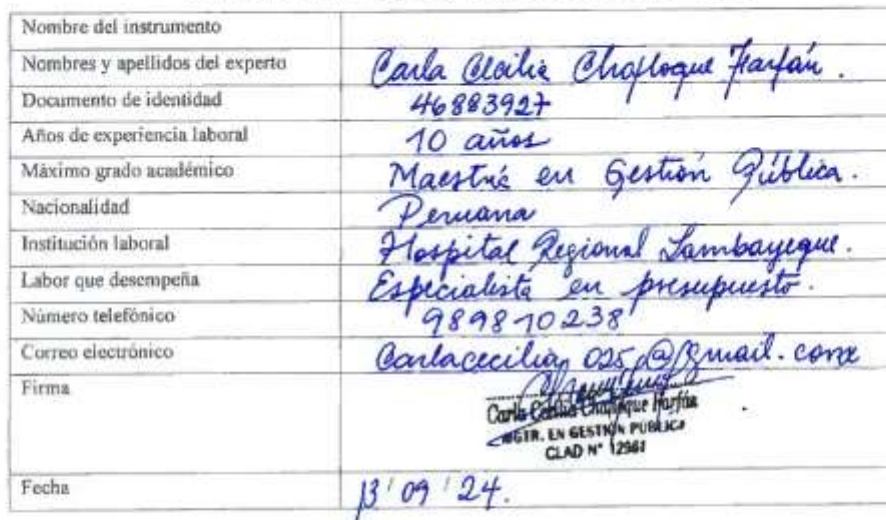 Nombre del instrumento
Nombres y apellidos del experto Carla Cecilia Chapoque Farfán.
Documento de identidad 46883927
Años de experiencia laboral 10 años
Máximo grado académico Maestría en Gestión Pública.
Nacionalidad Peruana
Institución laboral Hospital Regional Lambayeque.
Labor que desempeña Especialista en presupuesto.
Número telefónico 989810238
Correo electrónico Carlacecilia 025@gmail.com
Firma
Carla Cecilia Farfán
MGTR. EN GESTIÓN PÚBLICA
CLAD N°
Fecha 13/09/24.